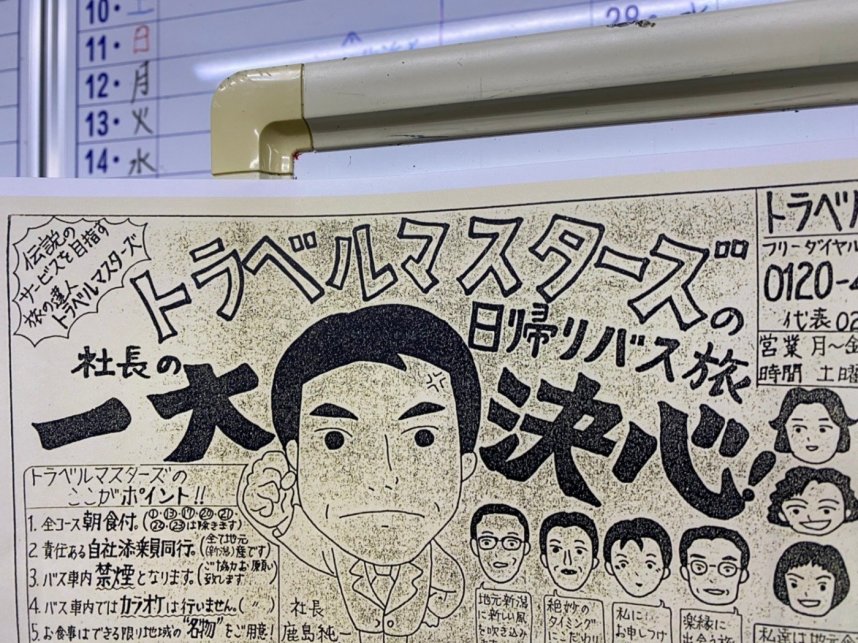 10・土
11・日
12・月
13・火
14・水
28・水
伝説の
サービスを目指す
旅の達人
トラベルマスターズ
トラベルマスターズの
日帰りバス旅
社長の
一大決心!
トラベル
フリーダイヤル
0120-4
代表02
営業 月〜金
時間 土曜
トラベルマスターズの
ここがポイント!!
1. 全コース朝食付。(①・⑬・⑰・⑳・㉑ ㉒・㉓は除きます)
2. 責任ある自社添乗員同行。(全て地元(新潟)産です)
3. バス車内禁煙となります。(ご協力お願い致します)
4. バス車内ではカラオケは行いません。(〃)
5. お食事はできる限り地域の"名物"をご用意!
社長
鹿島純一
地元新潟
に新しい風
を吹き込み
絶妙の
タイミング
にこだわり
私に
お申しつけ